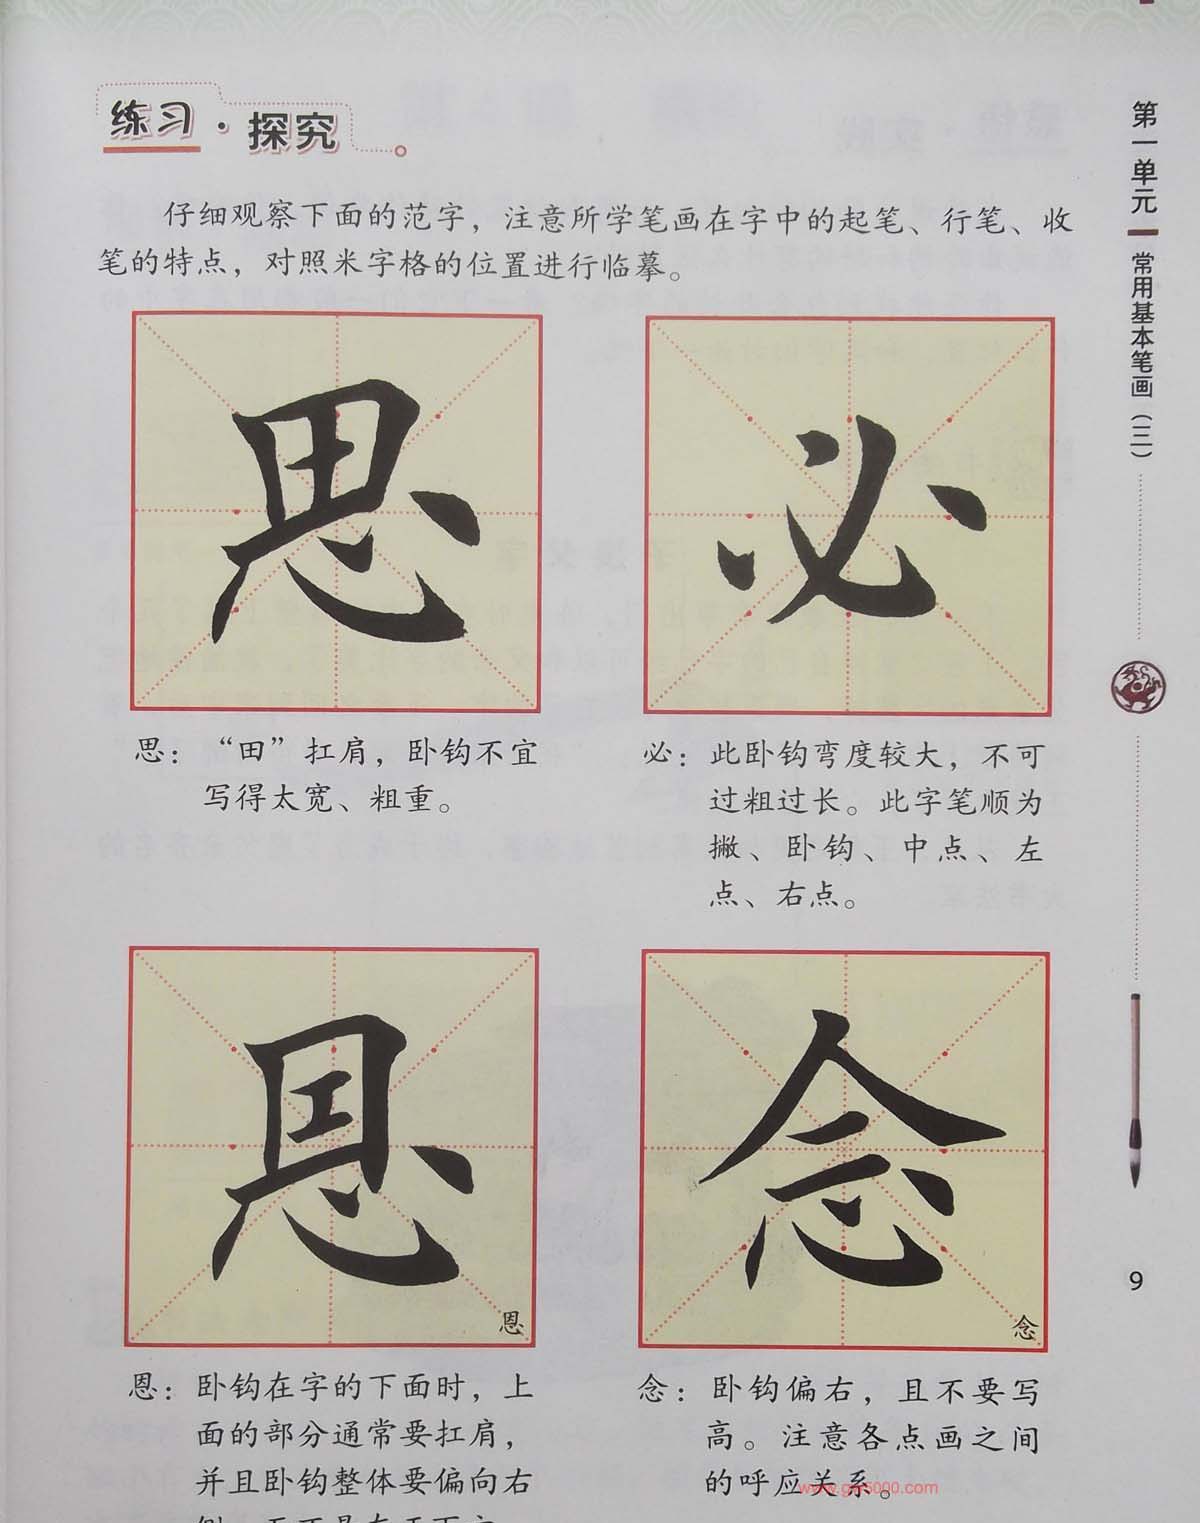 练习·探究
仔细观察下面的范字，注意所学笔画在字中的起笔、行笔、收
笔的特点，对照米字格的位置进行临摹。
思
必
思：“田”扛肩，卧钩不宜
写得太宽、粗重。
必：此卧钩弯度较大，不可
过粗过长。此字笔顺为
撇、卧钩、中点、左
点、右点。
恩
恩
念
念
恩：卧钩在字的下面时，上
面的部分通常要扛肩，
并且卧钩整体要偏向右
念：卧钩偏右，且不要写
高。注意各点画之间
的呼应关系。
第一单元
常用基本笔画（三）
9